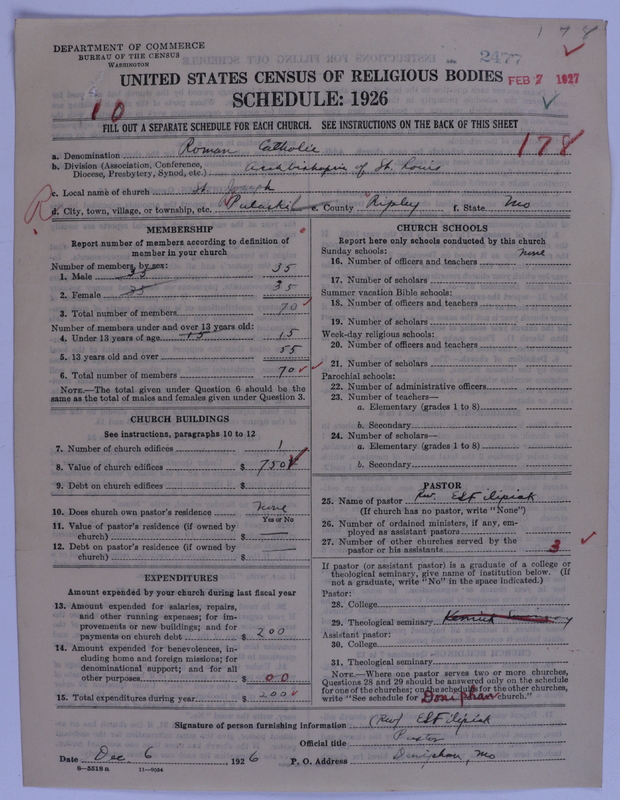 178
DEPARTMENT OF COMMERCE
BUREAU OF THE CENSUS
WASHINGTON
2477
UNITED STATES CENSUS OF RELIGIOUS BODIES FEB 7 1927
SCHEDULE: 1926
10
FILL OUT A SEPARATE SCHEDULE FOR EACH CHURCH. SEE INSTRUCTIONS ON THE BACK OF THIS SHEET
178
a. Denomination Roman Catholic
b. Division (Association, Conference, Diocese, Presbytery, Synod, etc.) of St. Louis
c. Local name of church St. Joseph
R d. City, town, village, or township, etc. Pulaski e. County Ripley f. State Mo
MEMBERSHIP
Report number of members according to definition of member in your church
Number of members by sex:
1. Male 35 35
2. Female 35 35
3. Total number of members 70
Number of members under and over 13 years old:
4. Under 13 years of age 15 15
5. 13 years old and over 55
6. Total number of members 70
NOTE.—The total given under Question 6 should be the same as the total of males and females given under Question 3.
CHURCH BUILDINGS
See instructions, paragraphs 10 to 12
7. Number of church edifices 1
8. Value of church edifices $ 750
9. Debt on church edifices $
10. Does church own pastor's residence none
Yes or No
11. Value of pastor's residence (if owned by church) $ —
12. Debt on pastor's residence (if owned by church) $ —
EXPENDITURES
Amount expended by your church during last fiscal year
13. Amount expended for salaries, repairs, and other running expenses; for improvements or new buildings; and for payments on church debt $ 200
14. Amount expended for benevolences, including home and foreign missions; for denominational support; and for all other purposes $ 00
15. Total expenditures during year $ 200
CHURCH SCHOOLS
Report here only schools conducted by this church
Sunday schools:
16. Number of officers and teachers none
17. Number of scholars
Summer vacation Bible schools:
18. Number of officers and teachers
19. Number of scholars
Week-day religious schools:
20. Number of officers and teachers
21. Number of scholars
Parochial schools:
22. Number of administrative officers
23. Number of teachers—
a. Elementary (grades 1 to 8)
b. Secondary
24. Number of scholars—
a. Elementary (grades 1 to 8)
b. Secondary
PASTOR
25. Name of pastor Rev. ES Filipiak
(If church has no pastor, write "None")
26. Number of ordained ministers, if any, employed as assistant pastors
27. Number of other churches served by the pastor or his assistants 3
If pastor (or assistant pastor) is a graduate of a college or theological seminary, give name of institution below. (If not a graduate, write "No" in the space indicated.)
Pastor:
28. College
29. Theological seminary Kenrick Seminary
Assistant pastor:
30. College
31. Theological seminary
NOTE.—Where one pastor serves two or more churches, Questions 28 and 29 should be answered only on the schedule for one of the churches; on the schedules for the other churches, write "See schedule for Doniphan church."
Signature of person furnishing information (Rev) ES Filipiak
Official title Pastor
Date Dec. 6, 1926 P. O. Address Doniphan, Mo
8—5518 a 11—9034